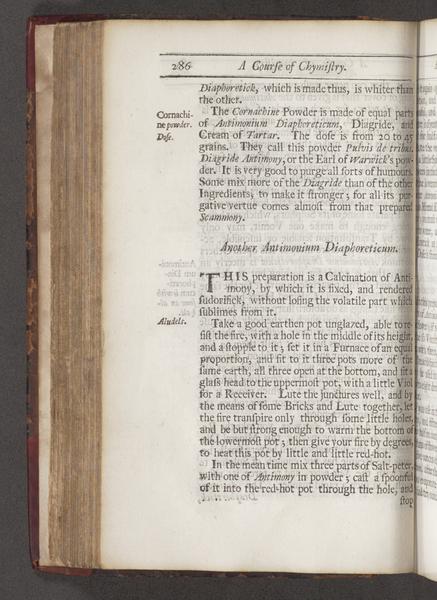 286 A Courſe of Chymiſtry.
Diaphoretick, which is made thus, is whiter than
the other.
Cornachi-
ne powder.
Doſe.
The Cornachine Powder is made of equal parts
of Antimonium Diaphoreticum, Diagride, and
Cream of Tartar. The doſe is from 20 to 45
grains. They call this powder Pulvis de tribus,
Diagride Antimony, or the Earl of Warwick's pow-
der. It is very good to purge all ſorts of humours.
Some mix more of the Diagride than of the other
Ingredients, to make it ſtronger; for all its pur-
gative vertue comes almoſt from that prepared
Scammony.
Another Antimonium Diaphoreticum.
THIS preparation is a Calcination of Anti-
mony, by which it is fixed, and rendered
ſudorifick, without loſing the volatile part which
ſublimes from it.
Aludels.
Take a good earthen pot unglazed, able to re-
ſiſt the fire, with a hole in the middle of its height,
and a ſtopple to it; ſet it in a Furnace of an equal
proportion, and fit to it three pots more of the
ſame earth, all three open at the bottom, and fit a
glaſs head to the uppermoſt pot, with a little Viol
for a Receiver. Lute the junctures well, and by
the means of ſome Bricks and Lute together, let
the fire tranſpire only through ſome little holes,
and be but ſtrong enough to warm the bottom of
the lowermoſt pot; then give your fire by degrees,
to heat this pot by little and little red-hot.
In the mean time mix three parts of Salt-peter,
with one of Antimony in powder; caſt a ſpoonful
of it into the red-hot pot through the hole, and
ſtop